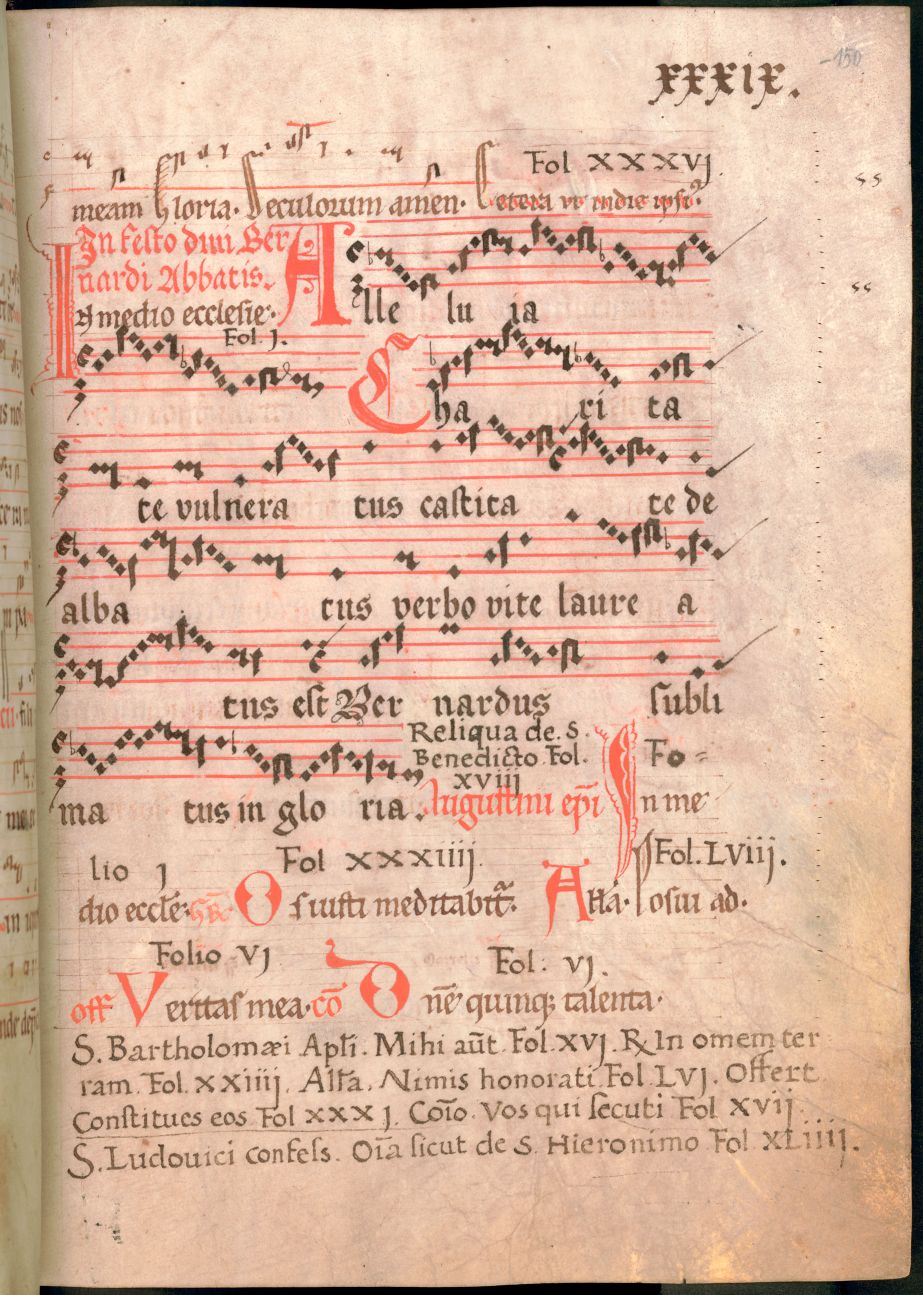 -150
xxxix.
Fol xxxvj
meam Gloria. Seculorum amen. Cetera vt
In festo diui Ber
nardi Abbatis.
In medio ecclesie.
Fol. j.
Alle lu ia
Cha ri ta
te vulnera tus castita te de
alba tus verbo vite laure a
tus est Ber nardus subli
Reliqua de. S.
Benedicto Fol.
xviij
Fo=
ma tus in glo ria. Augustini epi In me
lio j Fol xxxiiij. Fol. Lviij.
dio eccle. Os iusti meditabit. Alla. Posui ad.
Folio vj Fol. vj.
off Veritas mea. co Dne quinq talenta.
S. Bartholomæi Apli. Mihi aut. Fol. xvj. R In omem ter
ram. Fol. xxiiij. Alla. Nimis honorati. Fol. Lvj. Offert
Constitues eos Fol xxxj. Coio. Vos qui secuti Fol xvij.
S. Ludouici confess. Oia sicut de S. Hieronimo Fol xLiiij.